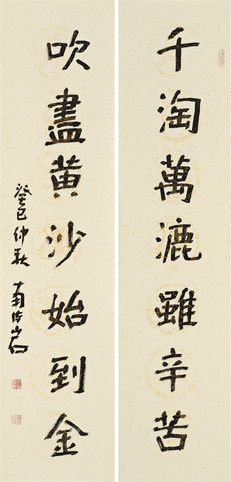 千淘萬漉雖辛苦
吹盡黃沙始到金
癸巳仲秋